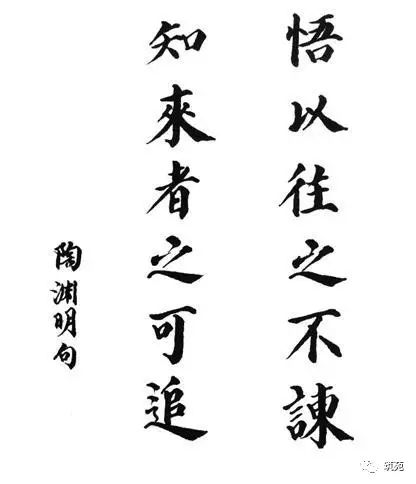 悟以往之不諌
知來者之可追
陶淵明句
筑苑